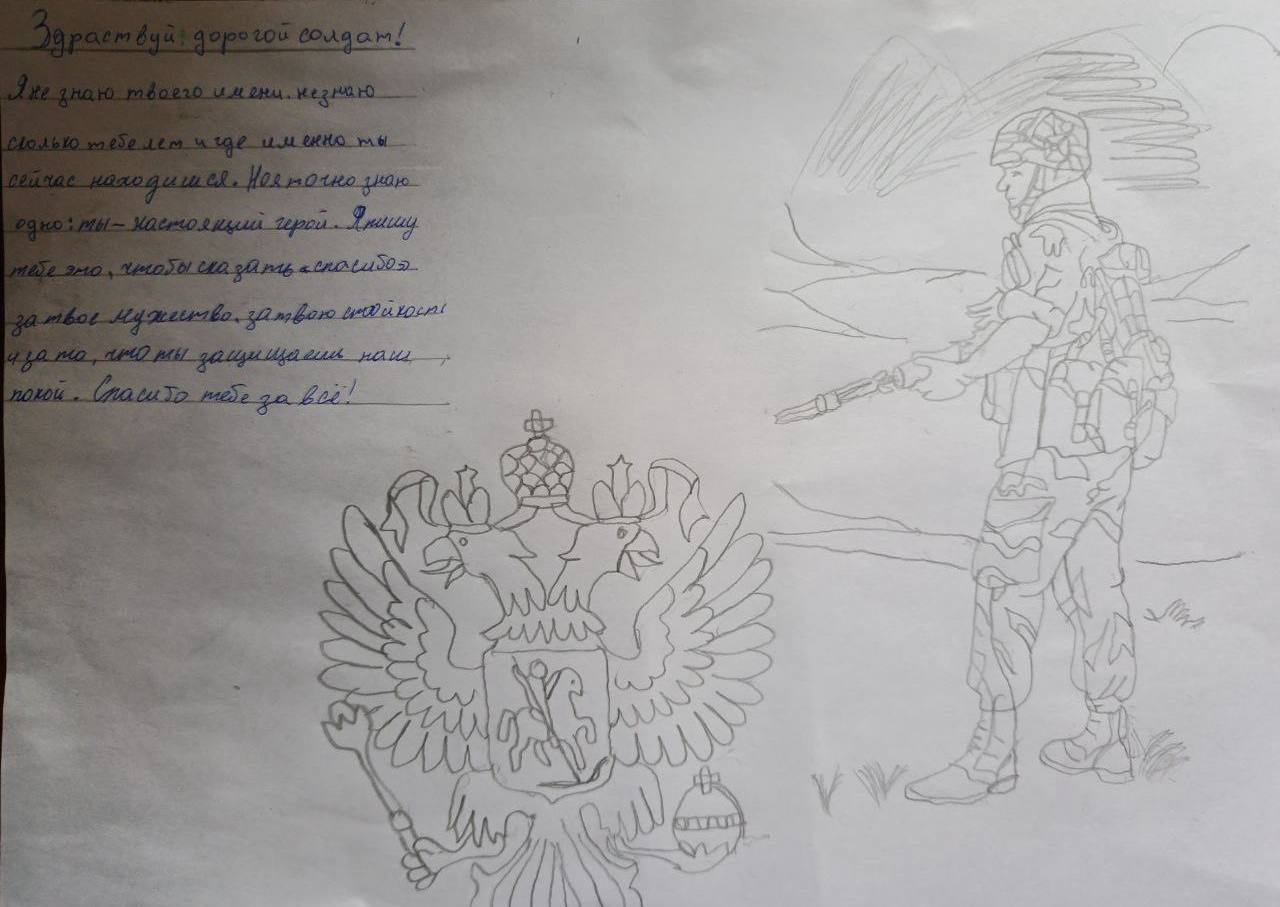 Здраствуй дорогой солдат!
Я не знаю твоего имени. не знаю
сколько тебе лет и где именно ты
сейчас находишся. Но я точно знаю
одно: ты – настоящий герой. Я пишу
тебе это, чтобы сказать «спасибо»
за твое мужество, за твою стойкость
и за то, что ты защищаешь наш
покой. Спасибо тебе за всё!